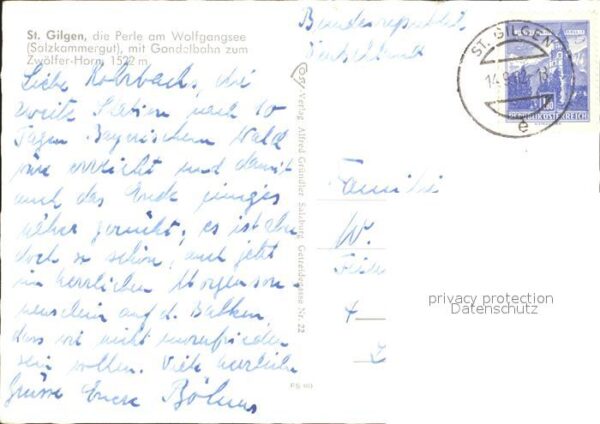 St. Gilgen, die Perle am Wolfgangsee
(Salzkammergut), mit Gondelbahn zum
Zwölfer-Horn, 1522 m.
Liebe Rohrbach, die
zweite Station nach 10
Tagen Bayerischem Wald
wäre erreicht und damit
auch das Ende einiges
näher gerückt; es ist aber
doch so schön, auch jetzt
im herrlichen Morgenson-
nenschein auf d. Balkon,
dass wir nicht unzufrieden
sein wollen. Viele herzliche
Grüsse Eure Böhms
Verlag Alfred Gründler Salzburg Getreidegasse Nr. 22
Bundesrepublik
Deutschland
ST. GILGEN
e
REPUBLIK ÖSTERREICH
Familie
W.
privacy protection
Datenschutz